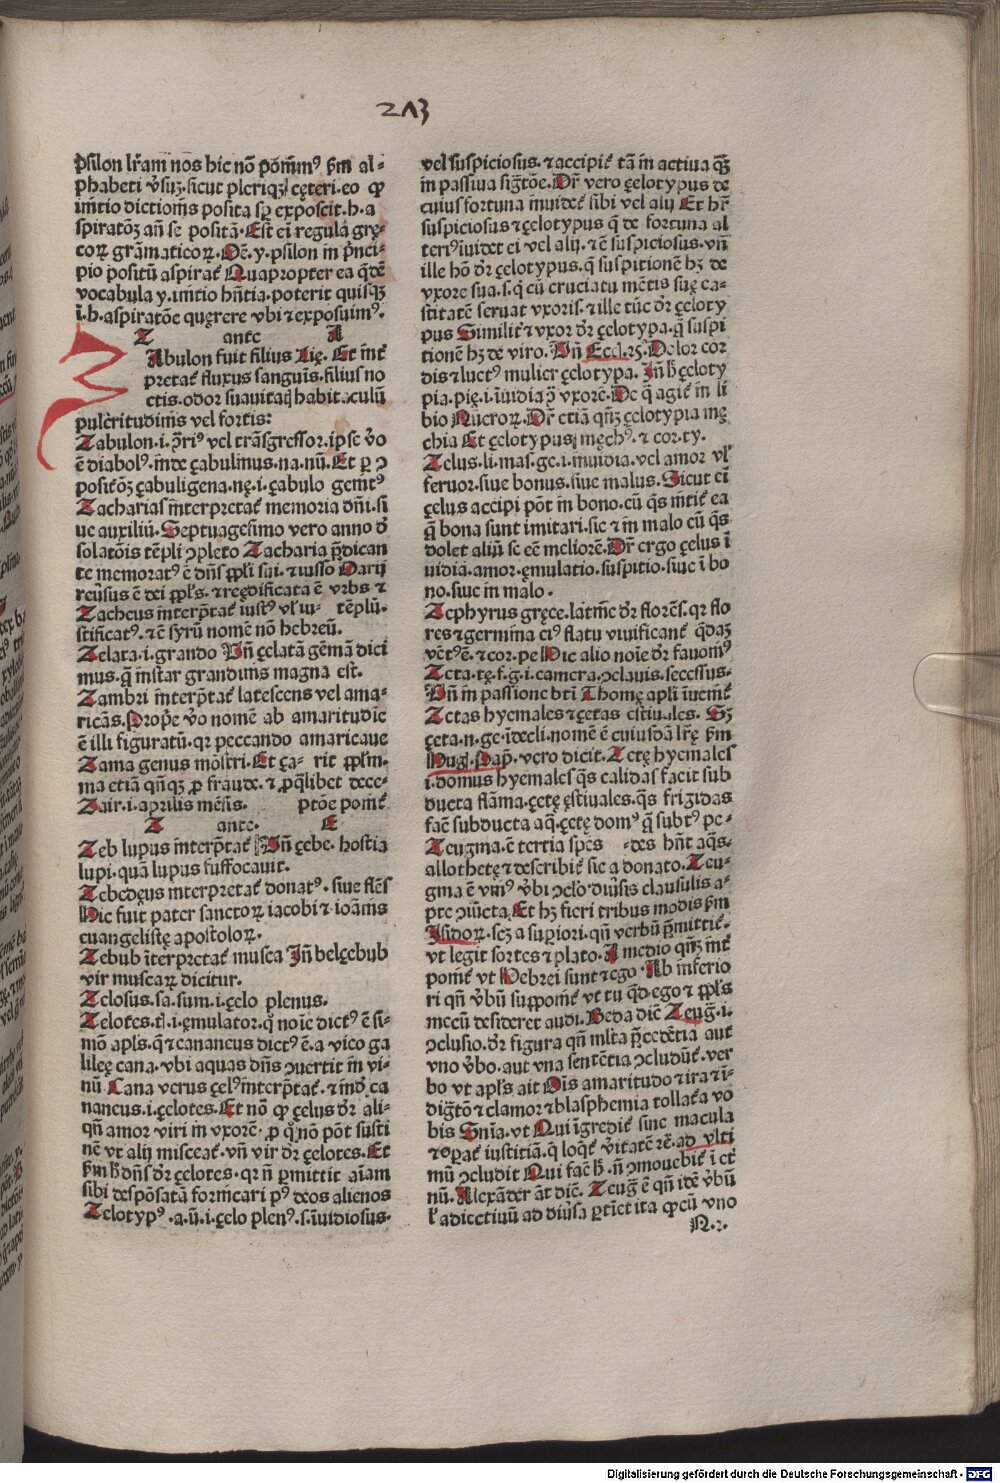 213
psilon lr̃am nos hic nõ põnimꝰ ẜm al⸗
phabeti v̾suꝫ. sicut pleriqꝫ cęteri. eo ꝙ
initio dictionis posita sp̃ exposcit. h. a
spiratõꝫ añ se positã. Est eñ regula gre⸗
coꝝ grãmaticoꝝ. Oẽ. y. psilon in p̾nci⸗
pio positũ aspiratᷣ. Quapropter ea q̃dẽ
vocabula y. initio hñtia. poterit quisqꝫ
ĩ. h. aspiratõe quęrere vbi ⁊ exposuimꝰ.
Z ante A
Abulon fuit filius Lię. Et int̾
pretatᷣ fluxus sanguis. filius no
ctis. odor suauitatꝭ habitaculũ
pulcritudinis vel fortis:
Zabulon. i. ꝯ̃riꝰ vel trãsgressor. ipse v̾o
ẽ diabolꝰ. inde çabulinus. na. nũ. Et ꝑ ꝯ
positõꝫ çabuligena. nę. i. çabulo genitꝰ
Zacharias interpretatᷣ memoria dñi. si
ue auxiliũ. Septuagesimo vero anno d̾
solatõis tẽpli ꝯpleto Zacharia p̃dican
te memoratꝰ ẽ dñs ppl̃i sui. ⁊ iusso Darij
reũsus ẽ dei ppl̃s. ⁊ reędificata ẽ vrbs ⁊
Zacheus interp̃tatᷣ iustꝰ vl̾ iu⸗ tẽplũ.
stificatꝰ. ⁊ ẽ syrũ nomẽ nõ hebreũ.
Zelata. i. grando Vñ çelatã gẽmã dici
mus. q̃ instar grandinis magna est.
Zambri interp̃tatᷣ latescens vel ama⸗
ricãs. Prop̾e v̾o nomẽ ab amaritudiẽ
ẽ illi figuratũ. qꝛ peccando amaricaue
Zama genus mõstri. Et ça⸗ rit ppl̃m.
ma etiã qñqꝫ ꝓ fraude. ⁊ ꝓ q̃libet dece⸗
Zair. i. aprilis mẽsis. ptõe ponitᷣ
Z ante. E
Zeb lupus interp̃tatᷣ Vñ çebe. hostia
lupi. quã lupus suffocauit.
Zebedęus interpretatᷣ donatꝰ. siue flẽs
Hic fuit pater sanctoꝝ iacobi ⁊ ioãnis
euangelistę apostoloꝝ.
Zebub ĩterpretatᷣ musca Iñ belçebub
vir muscaꝝ dicitur.
Zelosus. sa. sum. i. çelo plenus.
Zelotes. tꝭ. i. ęmulator. q̾ noĩe dictꝰ ẽ si⸗
mõ apl̃s. q̃ ⁊ cananeus dictꝰ ẽ. a vico ga
lileę cana. vbi aquas dñs ꝯuertit in vi⸗
nũ Cana verus çelꝰ interp̃tatᷣ. ⁊ ind̾ ca
naneus. i. çelotes. Et nõ ꝙ çelus dr̃ ali⸗
qñ amor viri in vxorẽ. ꝓ q̾ nõ põt susti
nẽ vt alij misceatᷣ. vñ vir dr̃ çelotes. Et
ẜm h̾ dñs dr̃ çelotes. qꝛ ñ ꝑmittit aĩam
sibi despõsatã fornicari pꝰ deos alienos
Zelotypꝰ. a. ũ. i. çelo plenꝰ. s. ĩuidiosus.
vel suspiciosus. ⁊ accipitᷣ tã in actiua q̃ꝫ
in passiua sig̃tõe. Dr̃ vero çelotypus de
cuius fortuna inuidetᷣ sibi vel alij Et hr̃
suspiciosus ⁊ çelotypus q̃ de fortuna al
teriꝰ ĩuidet ei vel alij. ⁊ ẽ suspiciosus. vñ
ille hõ dr̃ çelotypus. q̃ suspitionẽ hꝫ de
vxore sua. s. q̃ cũ cruciatu mẽtis suę ca⸗
stitatẽ seruat vxoris. ⁊ ille tũc dr̃ çeloty
pus Similit̾ ⁊ vxor dr̃ çelotypa. q̃ suspi
tionẽ hꝫ de viro. Vñ Eccl̃. 25. Dolor cor
dis ⁊ luctꝰ mulier çelotypa. Iñ h̾ çeloty
pia. pię. i. ĩuidia ꝓ vxore. De q̃ agitᷣ in li
bio Nũeroꝝ. Dr̃ etiã qñqꝫ çelotypia mę
chia Et çelotypus męchꝰ. ⁊ cor. ty.
Zelus. li. mas. ge. i. inuidia. vel amor vl̾
feruor. siue bonus. siue malus. Sicut eñ
çelus accipi põt in bono. cũ q̃s initᷣ ea
q̃ bona sunt imitari. sic ⁊ in malo cũ q̃s
dolet aliũ se eẽ meliorẽ. Dr̃ ergo çelus ĩ
uidia. amor. ęmulatio. suspitio. siue ĩ bo
no. siue in malo.
Zephyrus gręce. latine dr̃ florẽs. qꝛ flo
res ⁊ germina eiꝰ flatu viuificantᷣ. q̃daꝫ
vẽtꝰ ẽ. ⁊ cor. pe Hic alio noĩe dr̃ fauoniꝰ
Zeta. tę. f. g. i. camera. ꝯclauis. secessus.
Vñ in passione btĩ Thomę apl̃i ĩuenitᷣ
Zetas hyemales ⁊ çetas estiuales. Sꝫ
çeta. n. ge. ĩdecli. nomẽ ẽ cuiusdã lr̃ę ẜm
Hug̃. Pap̃. vero dicit. Zetę hyemales
i. domus hyemales q̃s calidas facit sub
ducta flãma. çetę ęstiuales. q̃s frigidas
facẽ subducta aq̃. çetę domꝰ q̃ subtꝰ pe⸗
Zeugma. ẽ tertia spẽs des hñt aq̃s.
allothetę ⁊ describitᷣ sic a donato. Zeu⸗
gma ẽ vniꝰ v̾bi ꝯclõ diũsis clausulis a⸗
pte ꝯiũcta. Et hꝫ fieri tribus modis ẜm
Isidoꝝ. scꝫ a supiori. qñ verbũ p̾mittitᷣ.
vt legit sortes ⁊ plato. A medio qñꝫ int̾
ponitᷣ vt Hebrei sunt ⁊ ego. Ab inferio
ri qñ v̾bũ supponitᷣ vt tu q̾d ego ⁊ ppl̃s
mecũ desideret audi. Beda diẽ Zeug̃. i.
ꝯclusio. dr̃ figura qñ ml̃ta p̃cedẽtia aut
vno v̾bo. aut vna sentẽtia ꝯcludũtᷣ. ver
bo vt apl̃s ait Oĩs amaritudo ⁊ ira ⁊ ĩ⸗
dig̃tõ ⁊ clamor ⁊ blasphemia tollatᷣ a vo
bis Sñia. vt Qui ĩgreditᷣ sine macula
⁊ oꝑatᷣ iustitiã. q̃ loq̃tᷣ v̾itatẽ ⁊c̃. ad vlti
mũ ꝯcludit Qui facẽ h̾. ñ ꝯmouebitᷣ ĩ et̾
nũ. Alexãder aũt diẽ. Zeug̃ ẽ qñ idẽ v̾bũ
l̾ adiectiuũ ad diũsa ꝑtinet ita ꝙ cũ vno
N. 2.
Digitalisierung gefördert durch die Deutsche Forschungsgemeinschaft - DFG